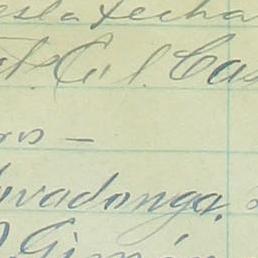 esta fecha
Gil Cas
ros —
vadonga,
Gimén